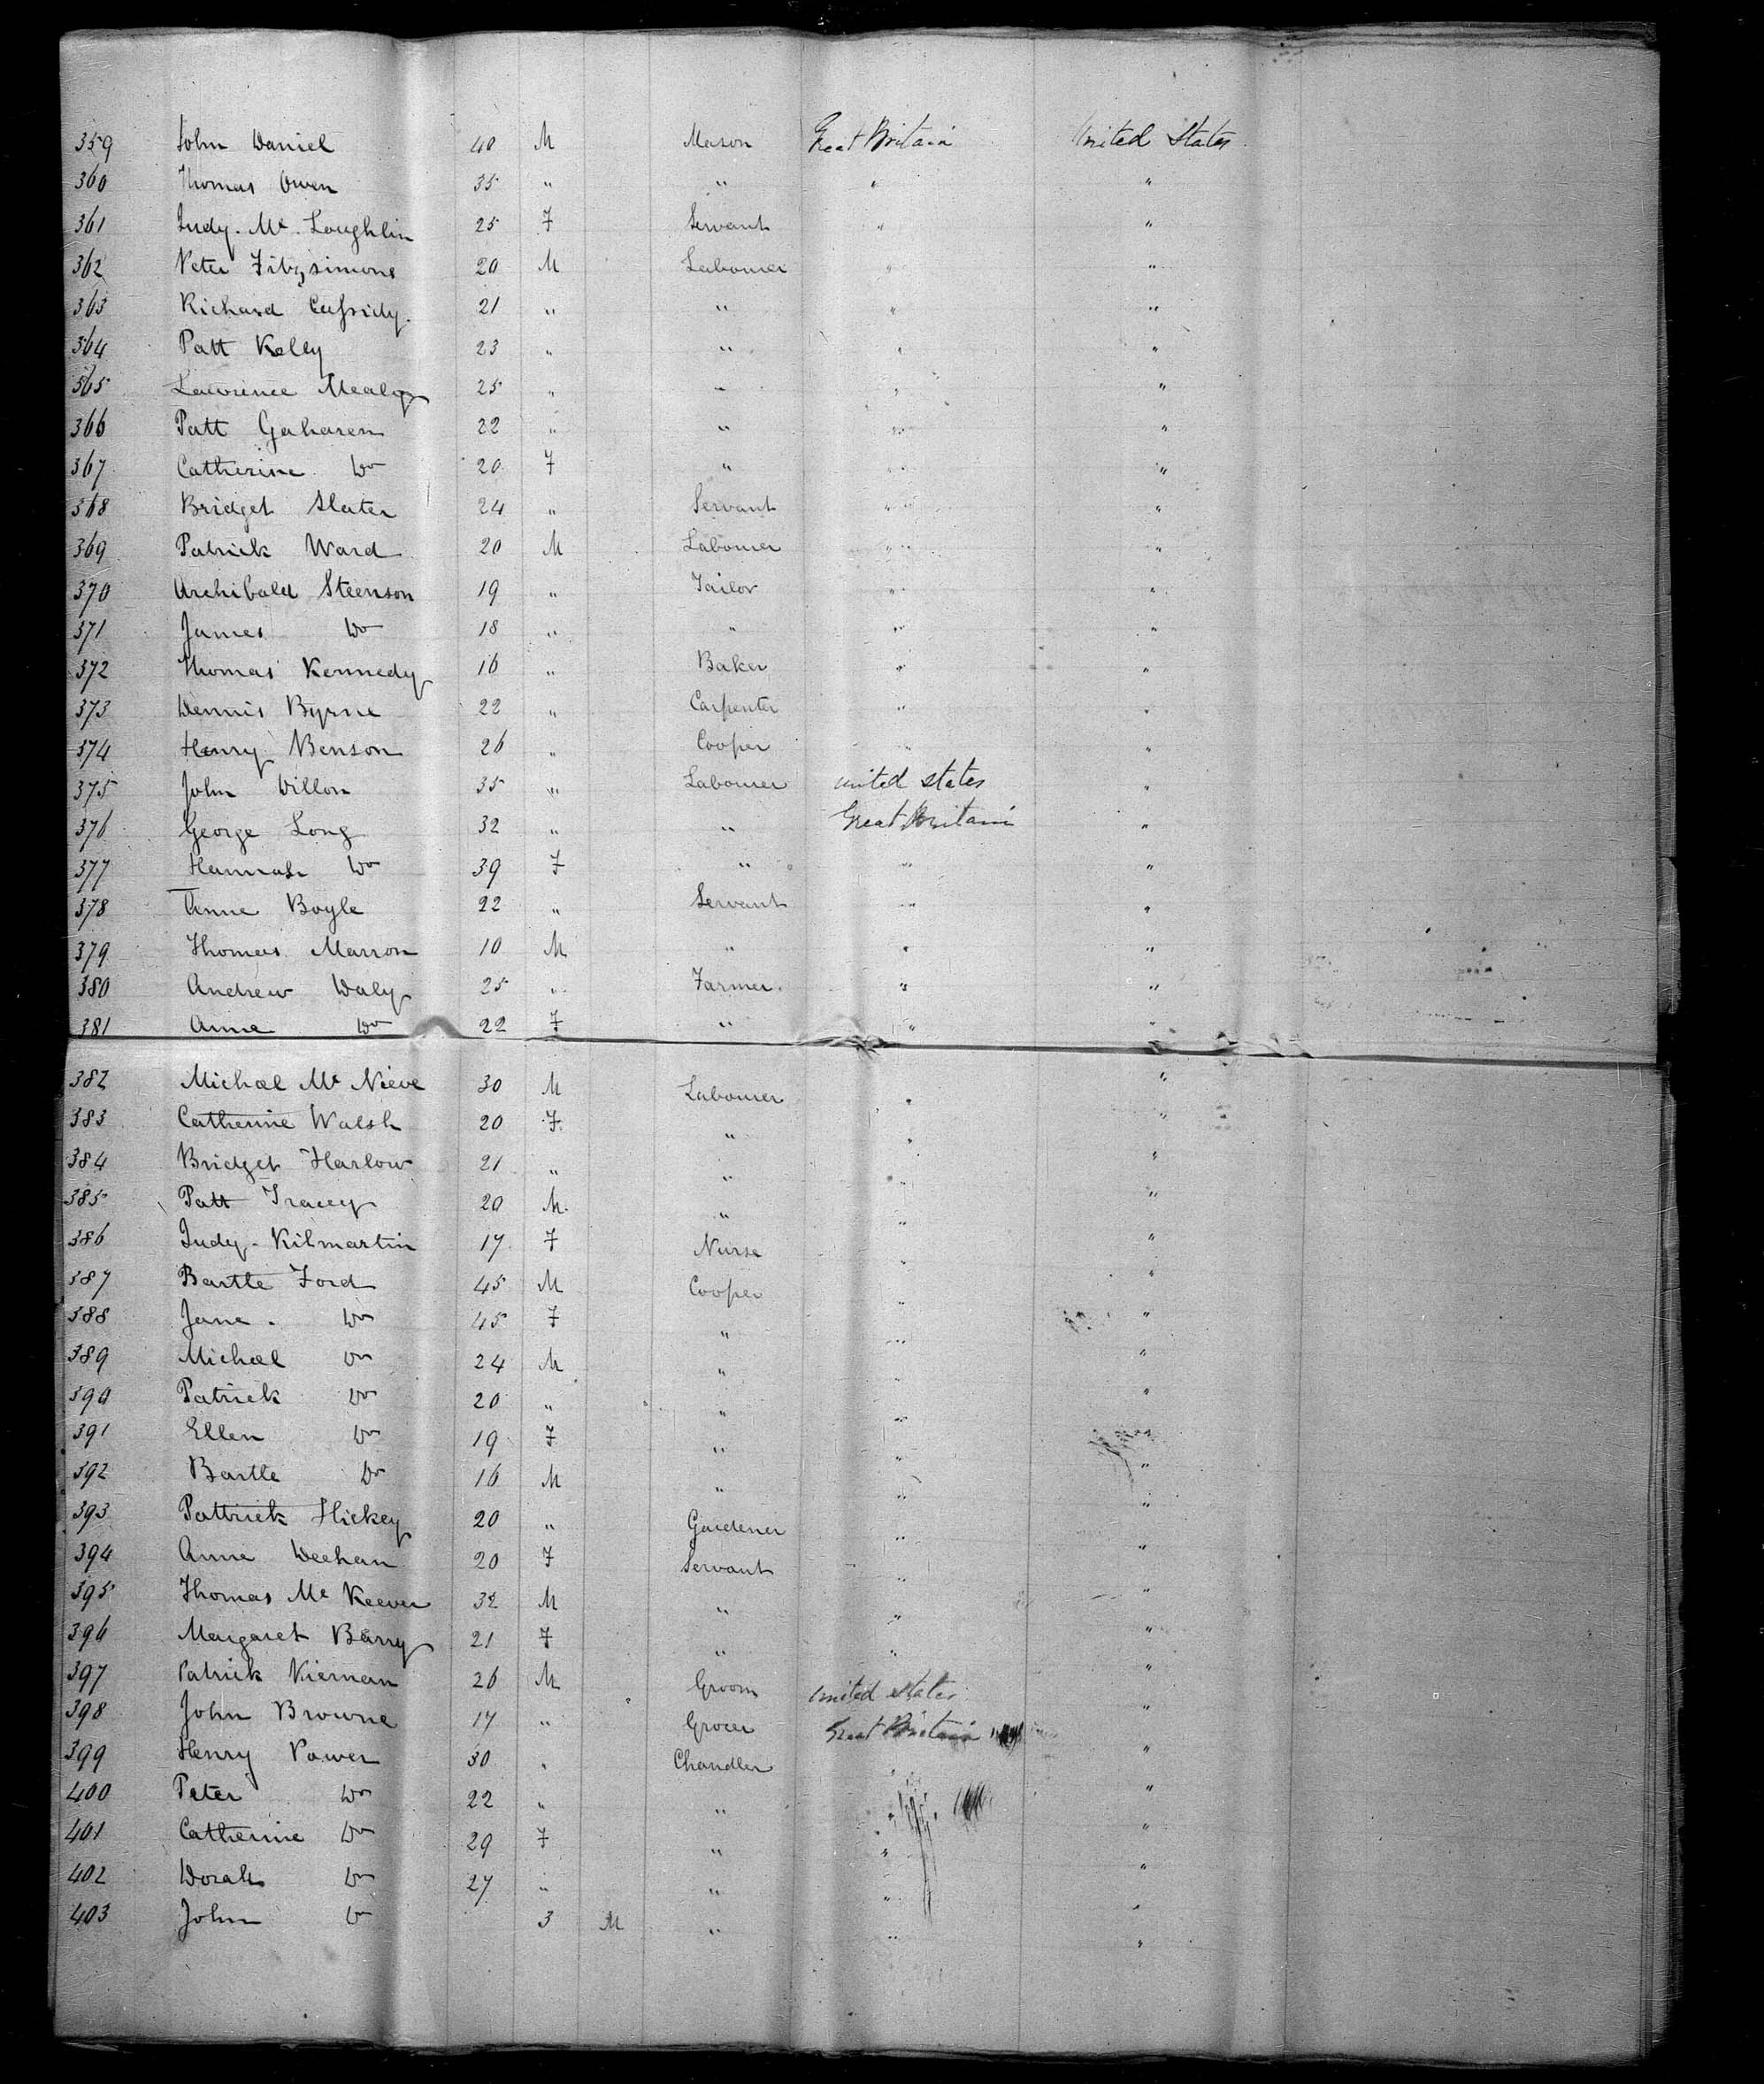 359 John Daniel 40 M Mason Great Britain United States
360 Thomas Owen 35 " " " "
361 Judy. Mc. Loughlin 25 F Servant " "
362 Peter Fitzsimons 20 M Labourer " "
363 Richard Cassidy. 21 " " " "
364 Patt Kelly 23 " " " "
365 Lawrence Mealy 25 " " " "
366 Patt Gaharen 22 " " " "
367 Catherine Do 20 F " " "
368 Bridget Slater 24 " Servant " "
369 Patrick Ward 20 M Labourer " "
370 Archibald Steenson 19 " Tailor " "
371 James Do 18 " " " "
372 Thomas Kennedy 16 " Baker " "
373 Dennis Byrne 22 " Carpenter " "
374 Henry Benson 26 " Cooper " "
375 John Dillon 35 " Labourer United States "
376 George Long 32 " " Great Britain "
377 Hannah Do 39 F " " "
378 Anne Boyle 22 " Servant " "
379 Thomas Marron 10 M " " "
380 Andrew Daly 25 " Farmer. " "
381 Anne Do 22 F " " "
382 Michael Mc Nieve 30 M Labourer " "
383 Catherine Walsh 20 F. " " "
384 Bridget Harlow 21 " " " "
385 Patt Tracey 20 M. " " "
386 Judy. Kilmartin 17 F Nurse " "
387 Bartle Ford 45 M Cooper " "
388 Jane. Do 45 F " " "
389 Michael Do 24 M " " "
390 Patrick Do 20 " " " "
391 Ellen Do 19 F " " "
392 Bartle Do 16 M " " "
393 Pattrick Hickey 20 " Gardener " "
394 Anne Deehan 20 F Servant " "
395 Thomas Mc Keever 32 M " " "
396 Margaret Barry 21 F " " "
397 Patrick Kiernan 26 M Groom United States "
398 John Browne 17 " Grocer Great Britain "
399 Henry Power 30 " Chandler " "
400 Peter Do 22 " " " "
401 Catherine Do 29 F " " "
402 Dorah Do 27 " " " "
403 John Do 3 M " " "